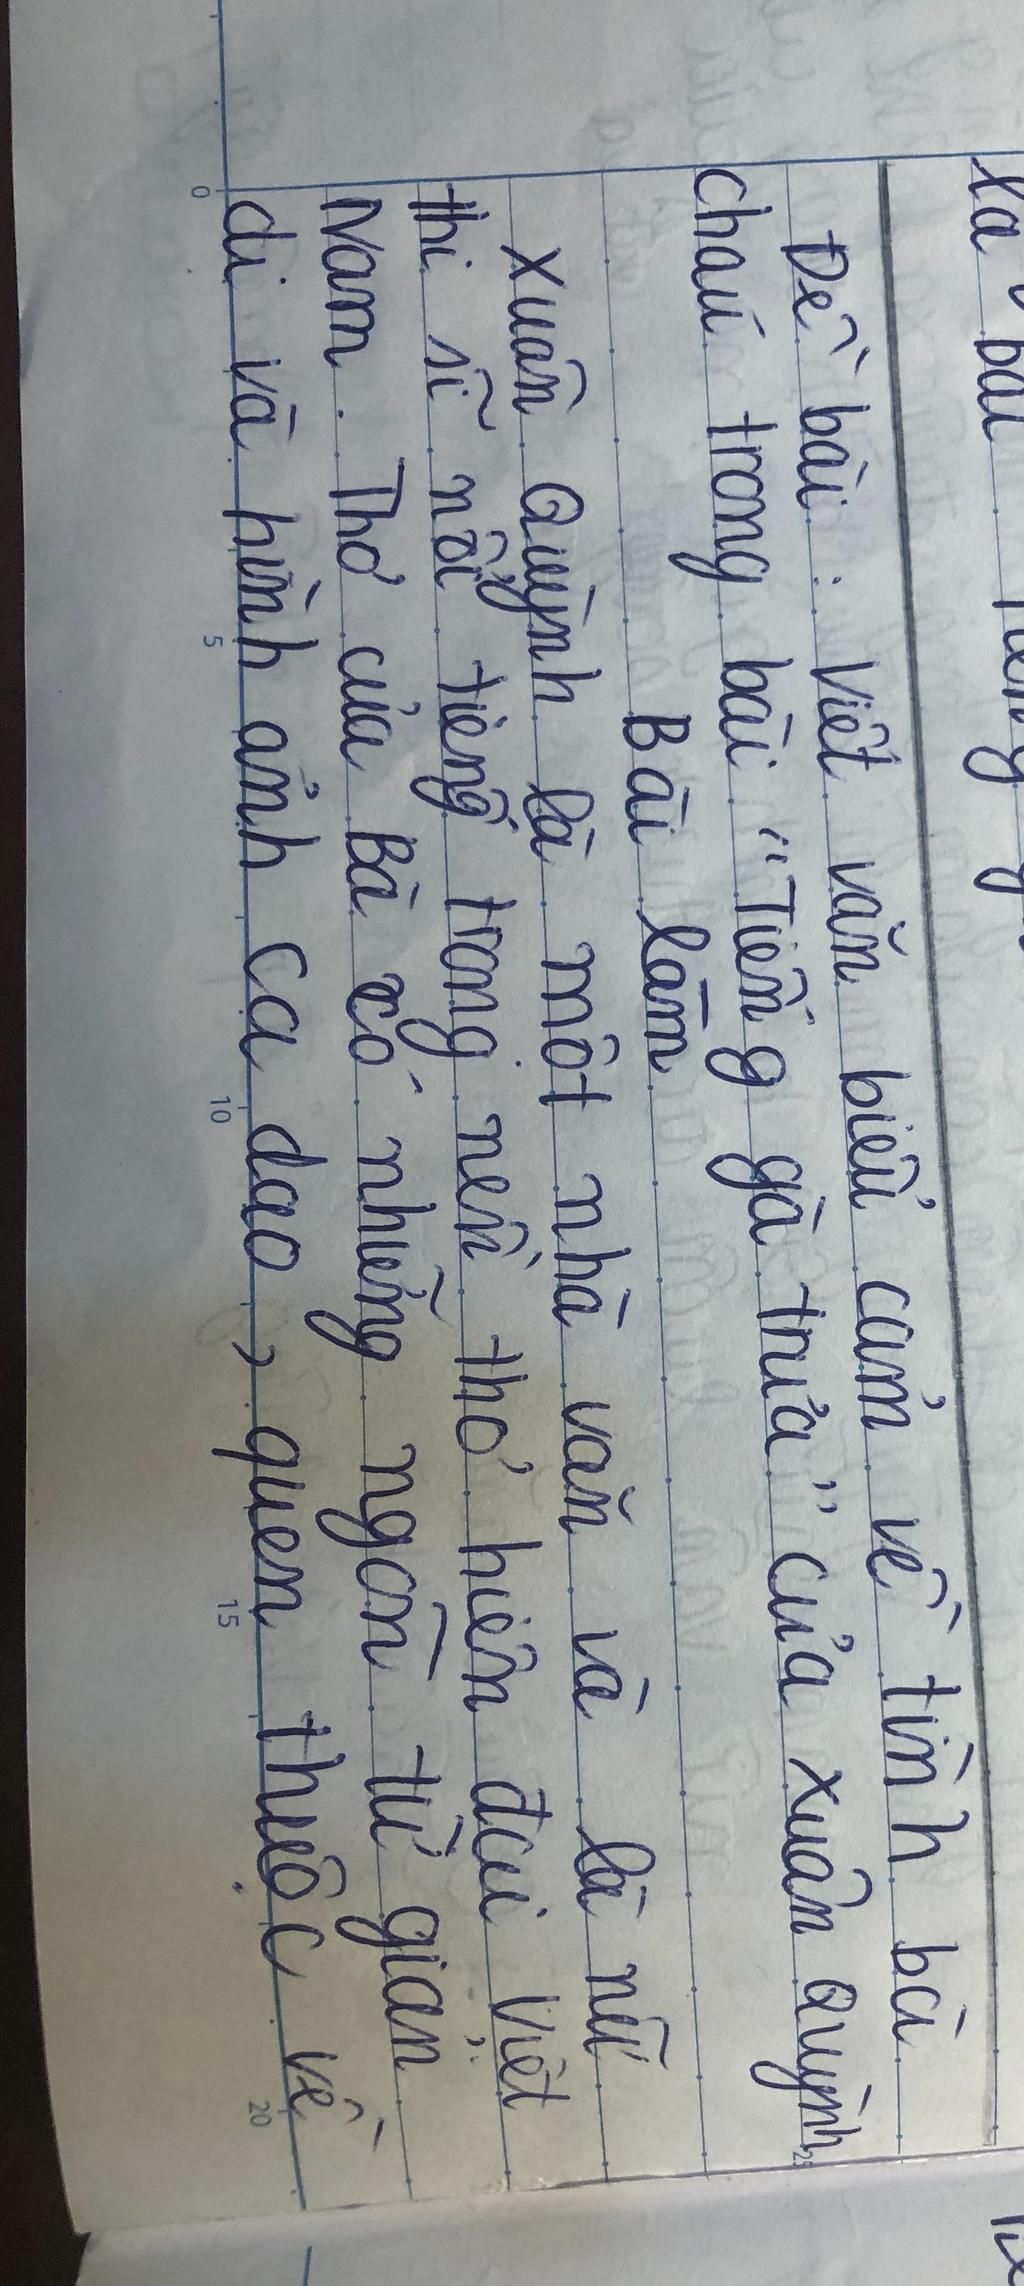 là 1 bài
Đề bài : Viết văn biểu cảm về tình bà
cháu trong bài "Tiếng gà trưa" của Xuân Quỳnh
Bài làm
Xuân Quỳnh là một nhà văn và là nữ
thi sĩ nổi tiếng trong nền thơ hiện đại Việt
Nam. Thơ của Bà có những ngôn từ giản
di và hình ảnh ca dao, quen thuộc về
0
5
10
15
20